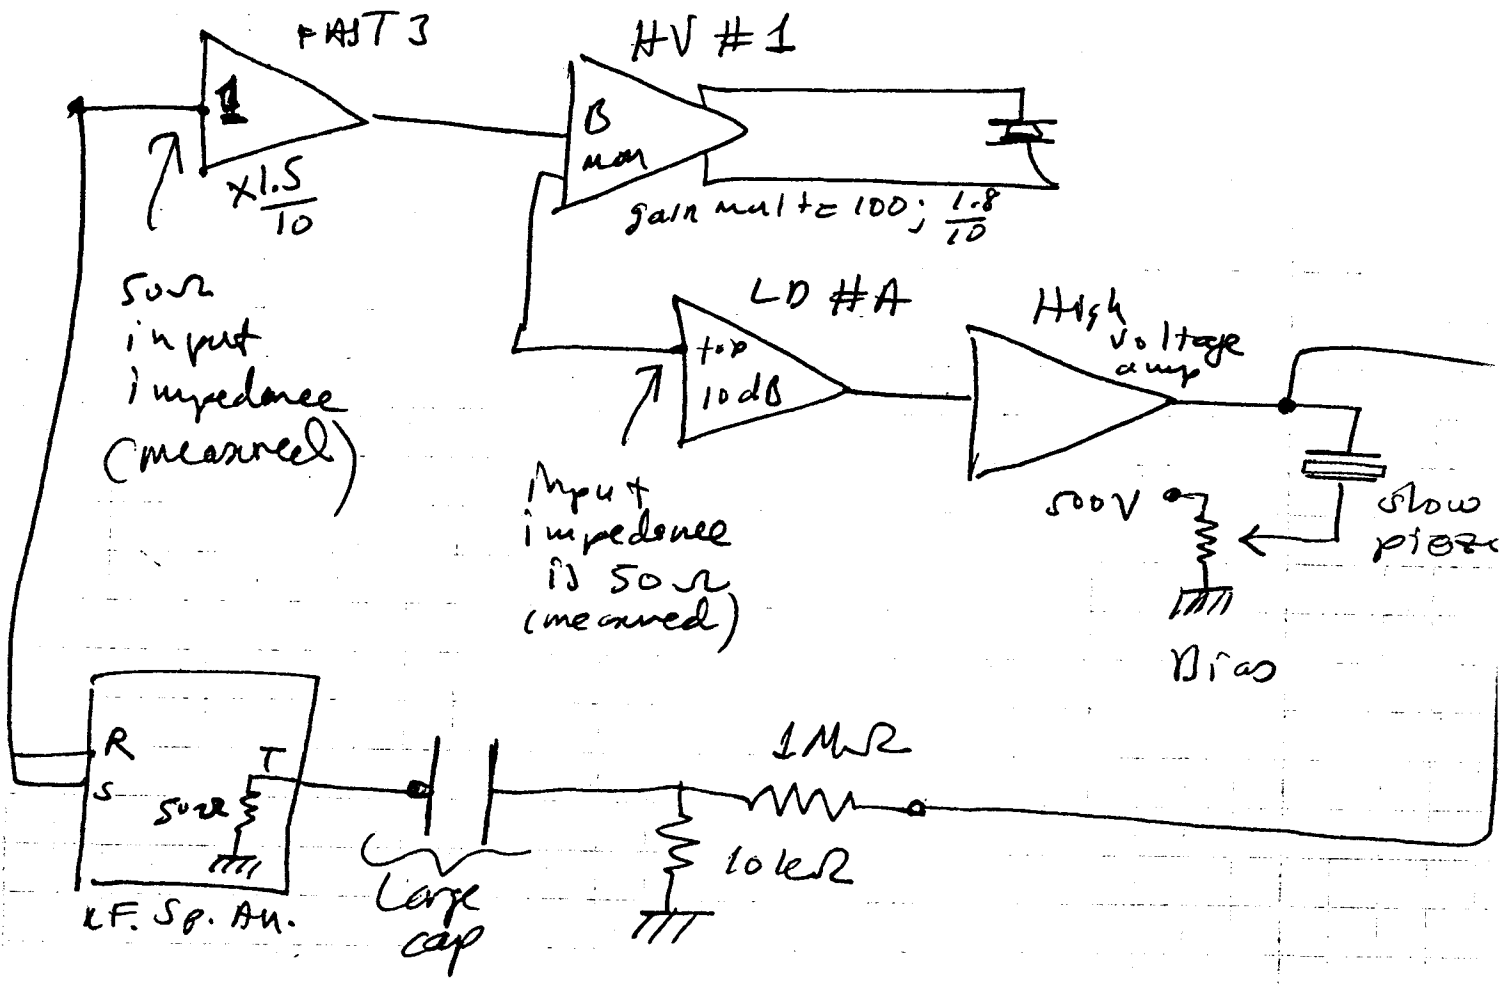 FAST 3
HV #1
1
x 1.5/10
B
mon
gain mult = 100; 1.8/10
50Ω
input
impedance
(measured)
LD #A
top
10dB
High
voltage
amp
input
impedance
is 50Ω
(measured)
500V
slow
piezo
Bias
R
S
T
50Ω
1MΩ
10kΩ
Large
cap
RF. Sp. An.